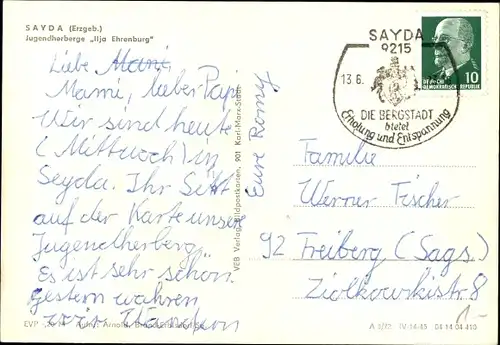 SAYDA (Erzgeb.)
Jugendherberge „Ilja Ehrenburg"
Liebe Mami,
Mami, lieber Papi
Wir sind heute
(Mittwoch) in
Seyda. Ihr Seht
auf der Karte unsere
Jugendherberg.
Es ist sehr schön.
gestern wahren
wir
Eure Romy
VEB Verlag Bildpostkarten, 901 Karl-Marx-Stadt
SAYDA
9215
13.6.
DIE BERGSTADT
bietet
Erholung und Entspannung
10
DEUTSCHE
DEMOKRATISCHE REPUBLIK
Familie
Werner Fischer
92 Freiberg (Sags.)
Ziolkowskistr. 8
EVP
Aufn.: Arnold,
IV-14-45 04 14 04 410
1-